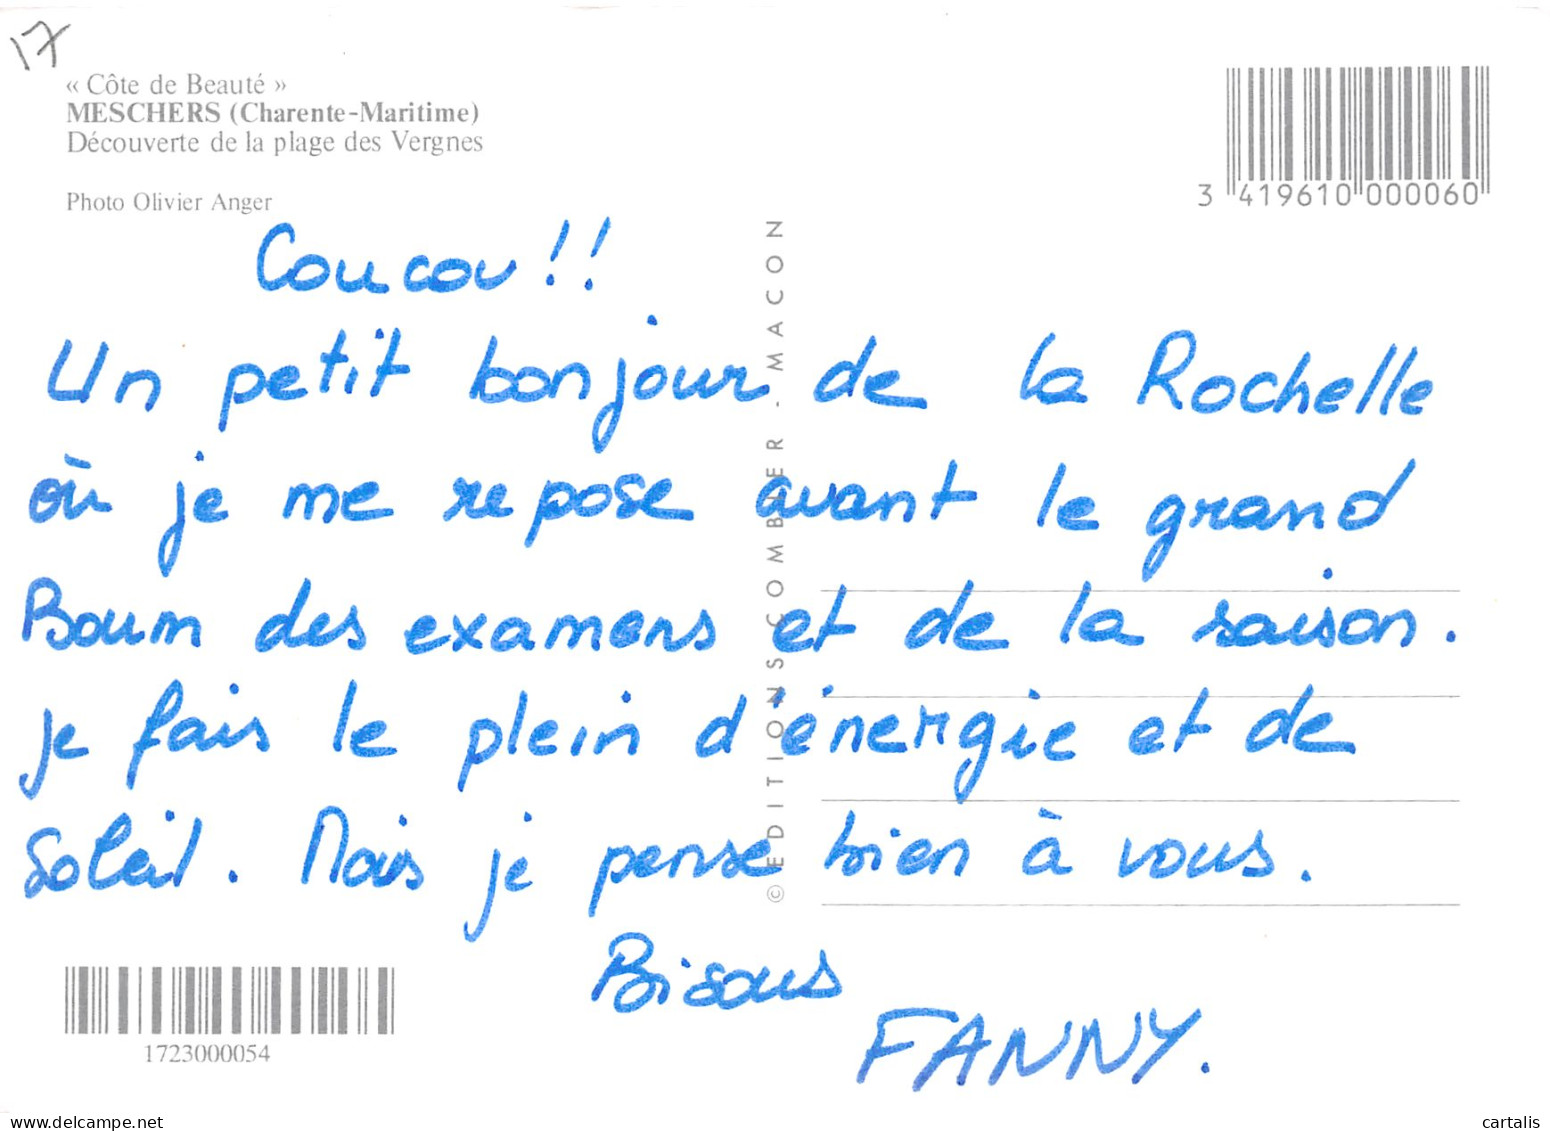 17
« Côte de Beauté »
MESCHERS (Charente-Maritime)
Découverte de la plage des Vergnes
Photo Olivier Anger
3 419610 000060
Coucou !!
Un petit bonjour de la Rochelle
où je me repose avant le grand
Boum des examens et de la saison.
je fais le plein d'énergie et de
Soleil. Mais je pense bien à vous.
Bisous
FANNY.
© EDITIONS COMBIER - MACON
1723000054
www.delcampe.net
cartalis